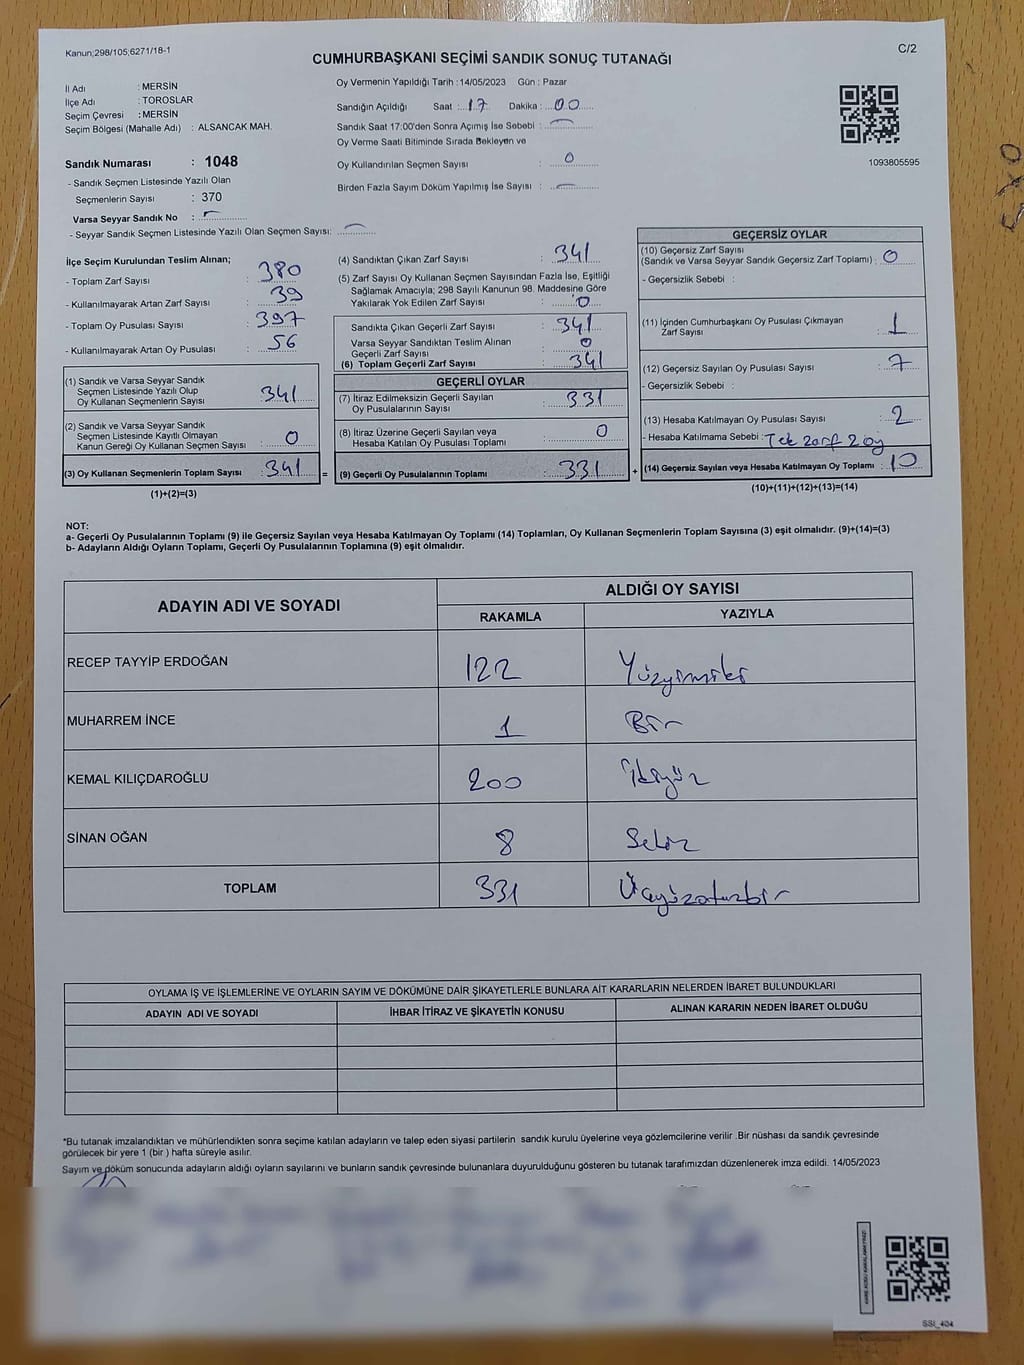 Kanun;298/105;6271/18-1
C/2
CUMHURBAŞKANI SEÇİMİ SANDIK SONUÇ TUTANAĞI
İl Adı : MERSİN
İlçe Adı : TOROSLAR
Seçim Çevresi : MERSİN
Seçim Bölgesi (Mahalle Adı) : ALSANCAK MAH.
Sandık Numarası : 1048
- Sandık Seçmen Listesinde Yazılı Olan
Seçmenlerin Sayısı : 370
Varsa Seyyar Sandık No :
- Seyyar Sandık Seçmen Listesinde Yazılı Olan Seçmen Sayısı:
Oy Vermenin Yapıldığı Tarih :14/05/2023 Gün : Pazar
Sandığın Açıldığı Saat : 17 Dakika : 00
Sandık Saat 17:00'den Sonra Açımış İse Sebebi :
Oy Verme Saati Bitiminde Sırada Bekleyen ve
Oy Kullandırılan Seçmen Sayısı : 0
Birden Fazla Sayım Döküm Yapılmış İse Sayısı :
1093805595
İlçe Seçim Kurulundan Teslim Alınan;
- Toplam Zarf Sayısı : 380
- Kullanılmayarak Artan Zarf Sayısı : 39
- Toplam Oy Pusulası Sayısı : 397
- Kullanılmayarak Artan Oy Pusulası : 56
(1) Sandık ve Varsa Seyyar Sandık
Seçmen Listesinde Yazılı Olup
Oy Kullanan Seçmenlerin Sayısı : 341
(2) Sandık ve Varsa Seyyar Sandık
Seçmen Listesinde Kayıtlı Olmayan
Kanun Gereği Oy Kullanan Seçmen Sayısı : 0
(3) Oy Kullanan Seçmenlerin Toplam Sayısı : 341 =
(1)+(2)=(3)
(4) Sandıktan Çıkan Zarf Sayısı : 341
(5) Zarf Sayısı Oy Kullanan Seçmen Sayısından Fazla İse, Eşitliği
Sağlamak Amacıyla; 298 Sayılı Kanunun 98. Maddesine Göre
Yakılarak Yok Edilen Zarf Sayısı : 0
Sandıkta Çıkan Geçerli Zarf Sayısı : 341
Varsa Seyyar Sandıktan Teslim Alınan
Geçerli Zarf Sayısı : 0
(6) Toplam Geçerli Zarf Sayısı : 341
GEÇERLİ OYLAR
(7) İtiraz Edilmeksizin Geçerli Sayılan
Oy Pusulalarının Sayısı : 331
(8) İtiraz Üzerine Geçerli Sayılan veya
Hesaba Katılan Oy Pusulası Toplamı : 0
(9) Geçerli Oy Pusulalarının Toplamı : 331 +
GEÇERSİZ OYLAR
(10) Geçersiz Zarf Sayısı
(Sandık ve Varsa Seyyar Sandık Geçersiz Zarf Toplamı) : 0
- Geçersizlik Sebebi :
(11) İçinden Cumhurbaşkanı Oy Pusulası Çıkmayan
Zarf Sayısı : 1
(12) Geçersiz Sayılan Oy Pusulası Sayısı : 7
- Geçersizlik Sebebi :
(13) Hesaba Katılmayan Oy Pusulası Sayısı : 2
- Hesaba Katılmama Sebebi : Tek zarf 2 oy
(14) Geçersiz Sayılan veya Hesaba Katılmayan Oy Toplamı : 10
(10)+(11)+(12)+(13)=(14)
NOT:
a- Geçerli Oy Pusulalarının Toplamı (9) ile Geçersiz Sayılan veya Hesaba Katılmayan Oy Toplamı (14) Toplamları, Oy Kullanan Seçmenlerin Toplam Sayısına (3) eşit olmalıdır. (9)+(14)=(3)
b- Adayların Aldığı Oyların Toplamı, Geçerli Oy Pusulalarının Toplamına (9) eşit olmalıdır.
ADAYIN ADI VE SOYADI
ALDIĞI OY SAYISI
RAKAMLA YAZIYLA
RECEP TAYYİP ERDOĞAN 122 Yüzyirmiiki
MUHARREM İNCE 1 Bir
KEMAL KILIÇDAROĞLU 200 İkiyüz
SİNAN OĞAN 8 Sekiz
TOPLAM 331 Üçyüzotuzbir
OYLAMA İŞ VE İŞLEMLERİNE VE OYLARIN SAYIM VE DÖKÜMÜNE DAİR ŞİKAYETLERLE BUNLARA AİT KARARLARIN NELERDEN İBARET BULUNDUKLARI
ADAYIN ADI VE SOYADI İHBAR İTİRAZ VE ŞİKAYETİN KONUSU ALINAN KARARIN NEDEN İBARET OLDUĞU
*Bu tutanak imzalandıktan ve mühürlendikten sonra seçime katılan adayların ve talep eden siyasi partilerin sandık kurulu üyelerine veya gözlemcilerine verilir .Bir nüshası da sandık çevresinde
görülecek bir yere 1 (bir ) hafta süreyle asılır.
Sayım ve döküm sonucunda adayların aldığı oyların sayılarını ve bunların sandık çevresinde bulunanlara duyurulduğunu gösteren bu tutanak tarafımızdan düzenlenerek imza edildi. 14/05/2023
SSI_404